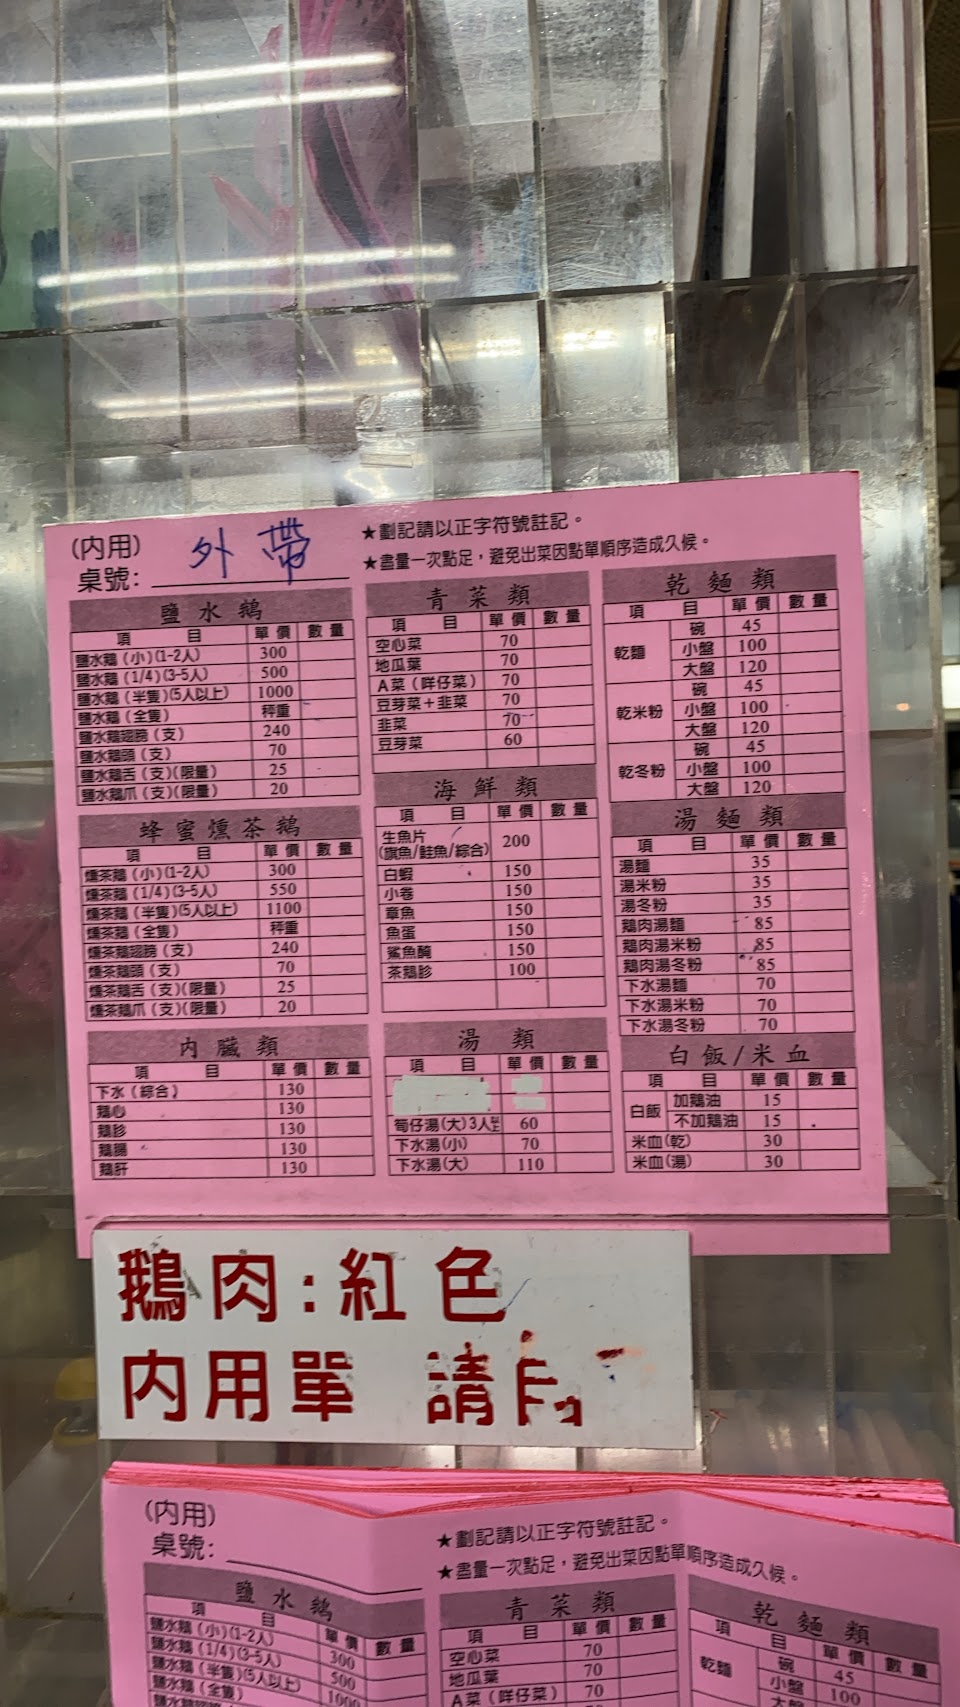 (內用)
桌號: 外帶
★劃記請以正字符號註記。
★盡量一次點足,避免出菜因點單順序造成久候。
鹽水鵝
項目 單價 數量
鹽水鵝(小)(1-2人) 300
鹽水鵝(1/4)(3-5人) 500
鹽水鵝(半隻)(5人以上) 1000
鹽水鵝(全隻) 秤重
鹽水鵝翅膀(支) 240
鹽水鵝頭(支) 70
鹽水鵝舌(支)(限量) 25
鹽水鵝爪(支)(限量) 20
蜂蜜燻茶鵝
項目 單價 數量
燻茶鵝(小)(1-2人) 300
燻茶鵝(1/4)(3-5人) 550
燻茶鵝(半隻)(5人以上) 1100
燻茶鵝(全隻) 秤重
燻茶鵝翅膀(支) 240
燻茶鵝頭(支) 70
燻茶鵝舌(支)(限量) 25
燻茶鵝爪(支)(限量) 20
內臟類
項目 單價 數量
下水(綜合) 130
鵝心 130
鵝胗 130
鵝腸 130
鵝肝 130
青菜類
項目 單價 數量
空心菜 70
地瓜葉 70
A菜(哶仔菜) 70
豆芽菜+韭菜 70
韭菜 70
豆芽菜 60
海鮮類
項目 單價 數量
生魚片
(旗魚/鮭魚/綜合) 200
白蝦 150
小卷 150
章魚 150
魚蛋 150
鯊魚醃 150
茶鵝胗 100
湯類
項目 單價 數量
筍仔湯(大)3人以上 60
下水湯(小) 70
下水湯(大) 110
乾麵類
項目 單價 數量
乾麵 碗 45
小盤 100
大盤 120
乾米粉 碗 45
小盤 100
大盤 120
乾冬粉 碗 45
小盤 100
大盤 120
湯麵類
項目 單價 數量
湯麵 35
湯米粉 35
湯冬粉 35
鵝肉湯麵 85
鵝肉湯米粉 85
鵝肉湯冬粉 85
下水湯麵 70
下水湯米粉 70
下水湯冬粉 70
白飯/米血
項目 單價 數量
白飯 加鵝油 15
不加鵝油 15
米血(乾) 30
米血(湯) 30
鵝肉:紅色
內用單 請
(內用)
桌號:
★劃記請以正字符號註記。
★盡量一次點足,避免出菜因點單順序造成久候。
鹽水鵝
項目 單價 數量
鹽水鵝(小)(1-2人) 300
鹽水鵝(1/4)(3-5人) 500
鹽水鵝(半隻)(5人以上) 1000
鹽水鵝(全隻)
青菜類
項目 單價 數量
空心菜 70
地瓜葉 70
A菜(哶仔菜) 70
乾麵類
項目 單價 數量
乾麵 碗 45
小盤 100